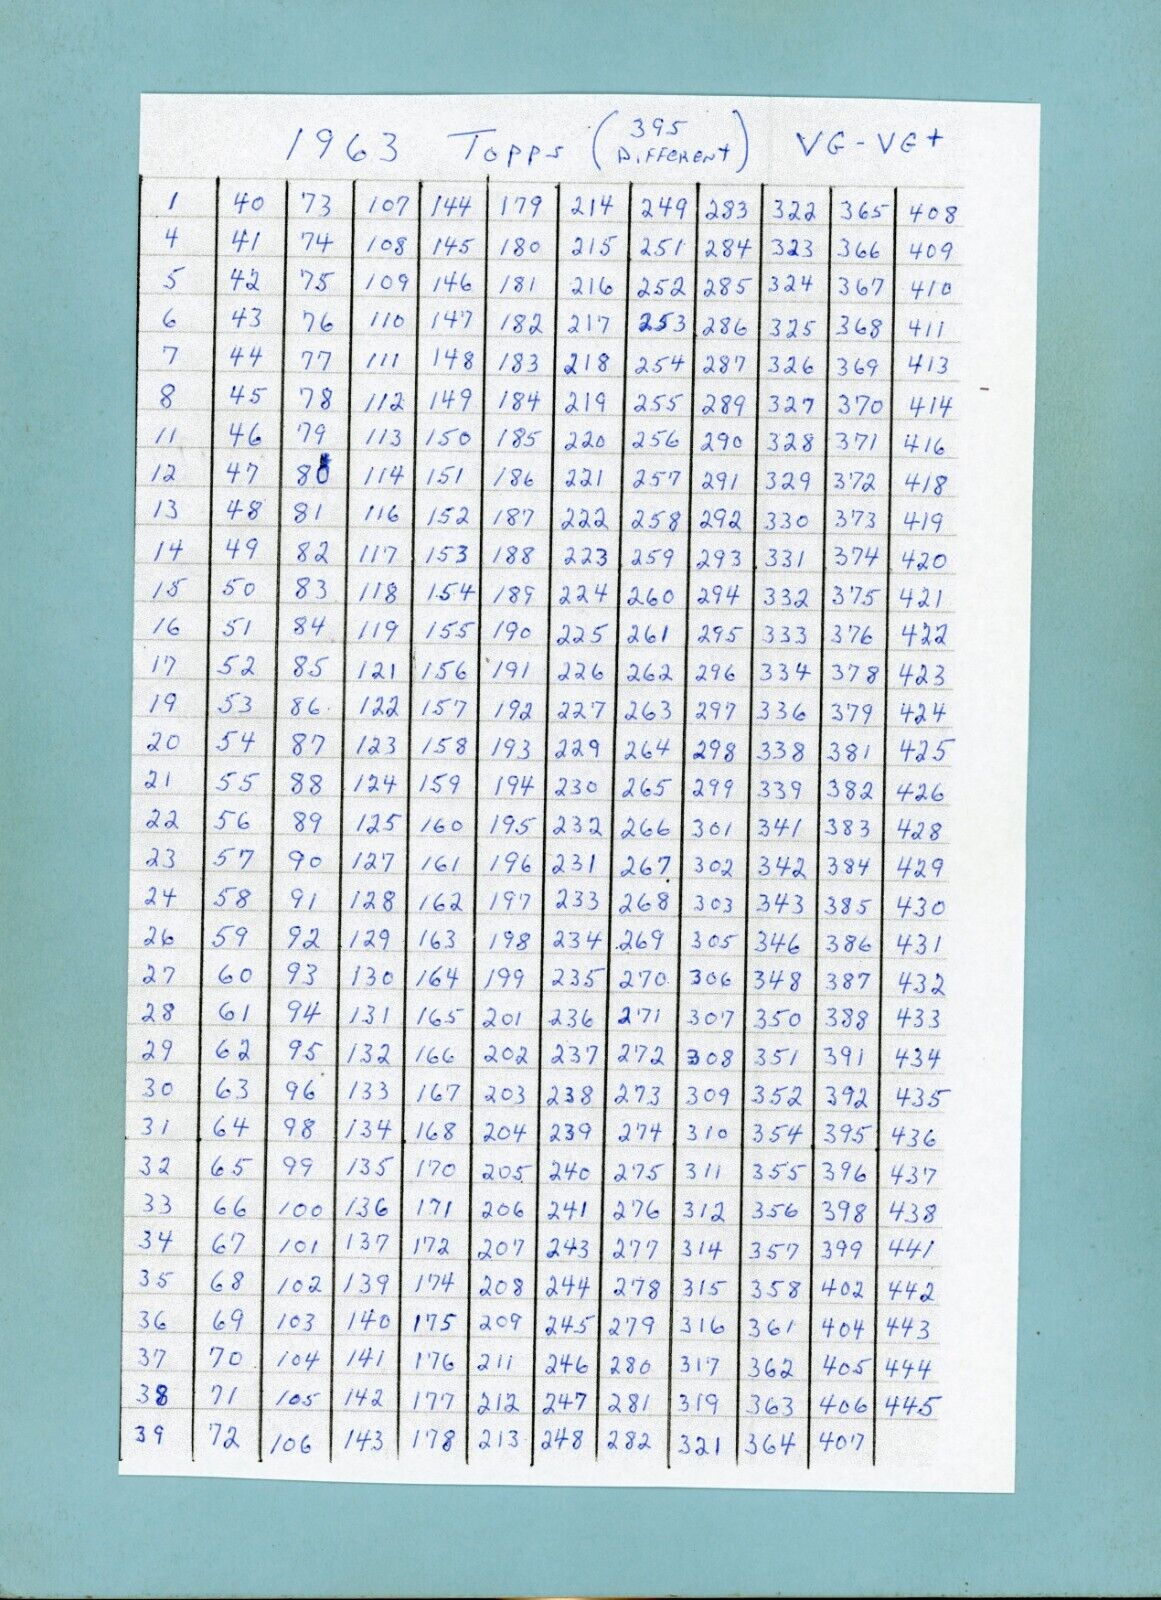 1963 Topps (395 Different) VG-VG+
1 40 73 107 144 179 214 249 283 322 365 408
4 41 74 108 145 180 215 251 284 323 366 409
5 42 75 109 146 181 216 252 285 324 367 410
6 43 76 110 147 182 217 253 286 325 368 411
7 44 77 111 148 183 218 254 287 326 369 413
8 45 78 112 149 184 219 255 289 327 370 414
11 46 79 113 150 185 220 256 290 328 371 416
12 47 80 114 151 186 221 257 291 329 372 418
13 48 81 116 152 187 222 258 292 330 373 419
14 49 82 117 153 188 223 259 293 331 374 420
15 50 83 118 154 189 224 260 294 332 375 421
16 51 84 119 155 190 225 261 295 333 376 422
17 52 85 121 156 191 226 262 296 334 378 423
19 53 86 122 157 192 227 263 297 336 379 424
20 54 87 123 158 193 229 264 298 338 381 425
21 55 88 124 159 194 230 265 299 339 382 426
22 56 89 125 160 195 232 266 301 341 383 428
23 57 90 127 161 196 231 267 302 342 384 429
24 58 91 128 162 197 233 268 303 343 385 430
26 59 92 129 163 198 234 269 305 346 386 431
27 60 93 130 164 199 235 270 306 348 387 432
28 61 94 131 165 201 236 271 307 350 388 433
29 62 95 132 166 202 237 272 308 351 391 434
30 63 96 133 167 203 238 273 309 352 392 435
31 64 98 134 168 204 239 274 310 354 395 436
32 65 99 135 170 205 240 275 311 355 396 437
33 66 100 136 171 206 241 276 312 356 398 438
34 67 101 137 172 207 243 277 314 357 399 441
35 68 102 139 174 208 244 278 315 358 402 442
36 69 103 140 175 209 245 279 316 361 404 443
37 70 104 141 176 211 246 280 317 362 405 444
38 71 105 142 177 212 247 281 319 363 406 445
39 72 106 143 178 213 248 282 321 364 407